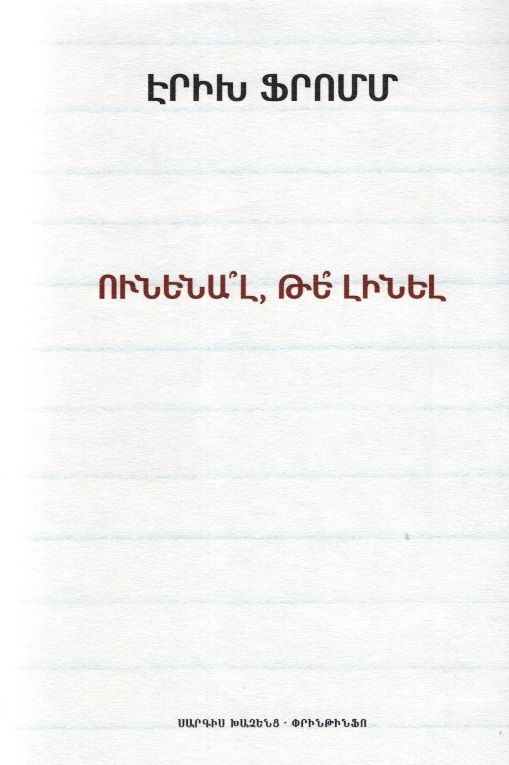 ԷՐԻԽ ՖՐՈՄՄ
ՈՒՆԵՆԱ՞Լ, ԹԵ՞ ԼԻՆԵԼ
ՍԱՐԳԻՍ ԽԱՉԵՆՑ · ՓՐԻՆԹԻՆՖՈ